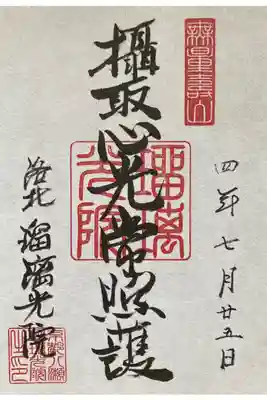 四年七月廿五日
攝取心光常照護
瑠璃
光院
洛北 瑠璃光院